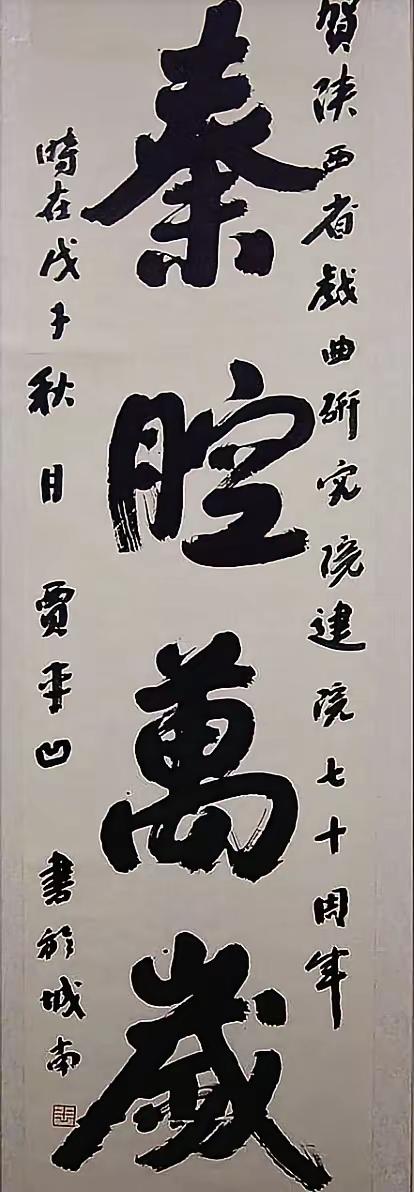 賀陕西省戲曲研究院建院七十周年
秦腔萬歲
時在戊子秋日 賈平凹 書於城南